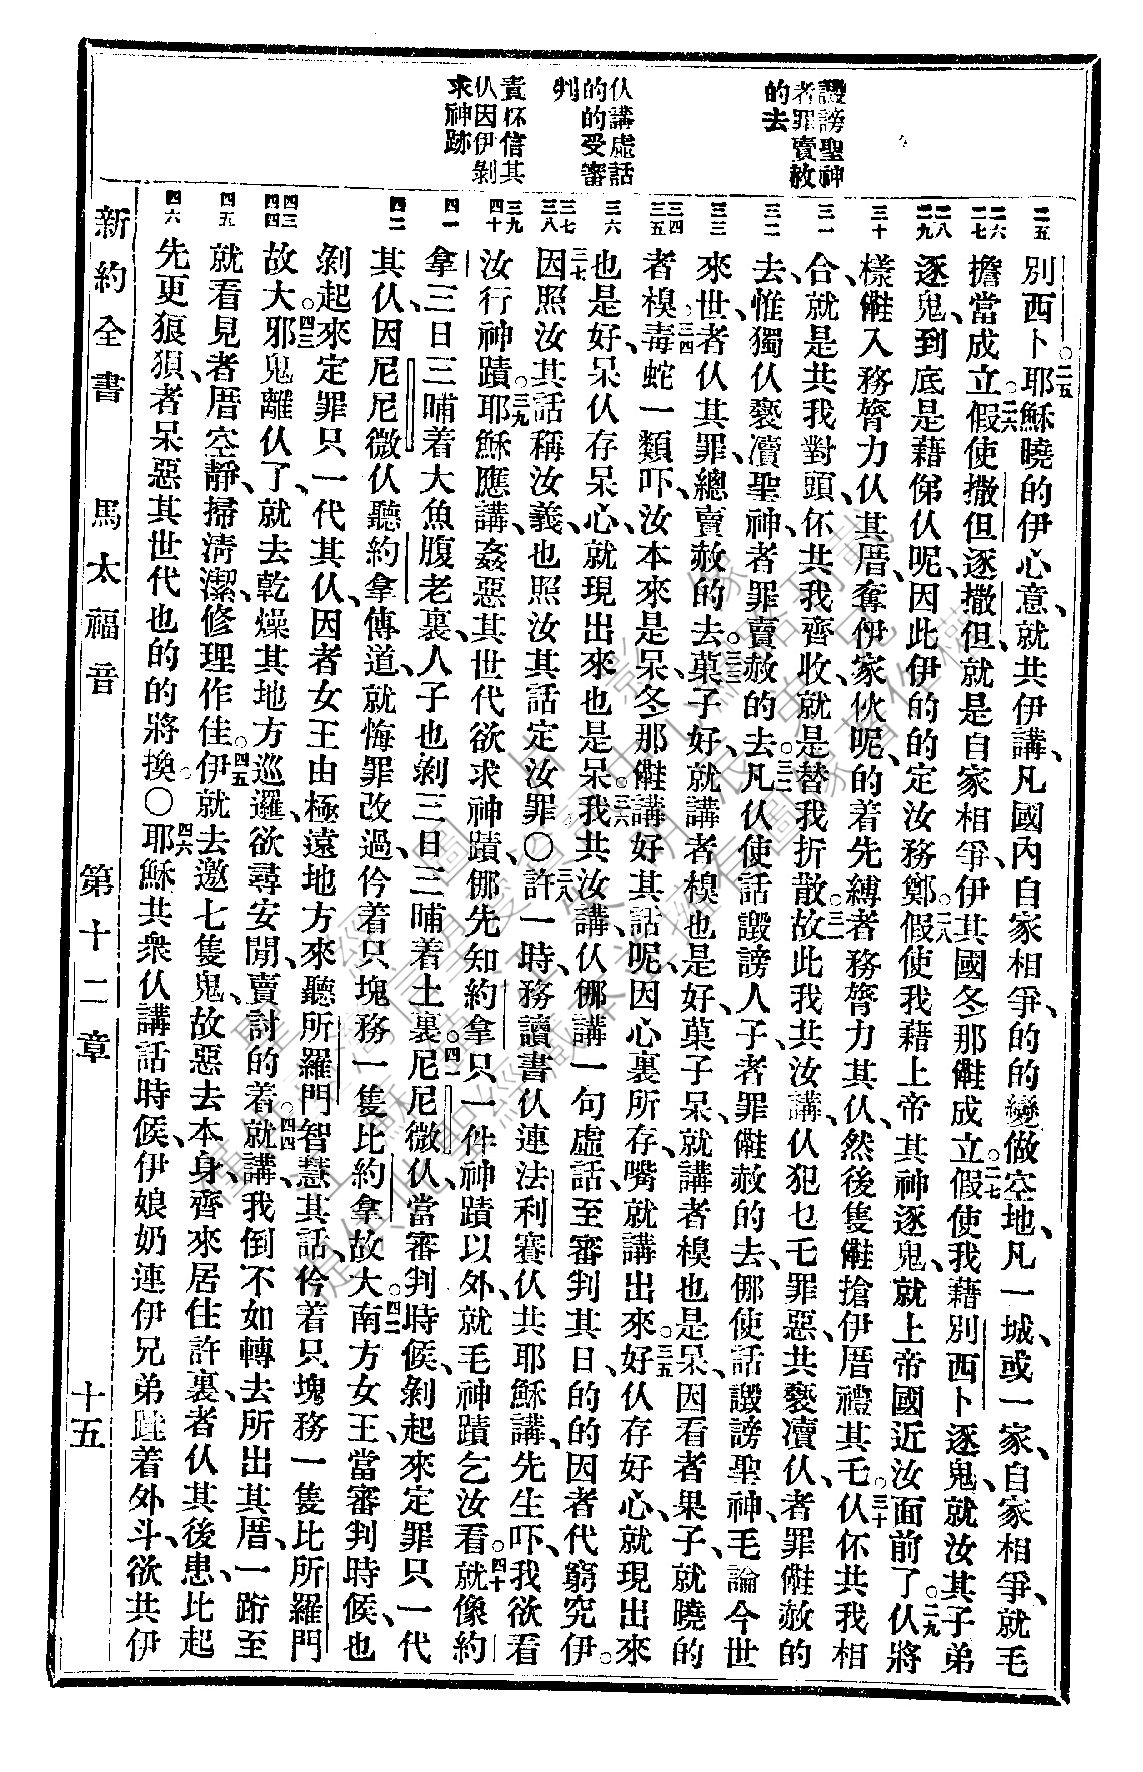 譭謗聖神
者罪賣赦
的去
仈講虛話
的的受審
判
責怀信其
仈因伊剝
求神跡
別西卜。二五耶穌曉的伊心意、就共伊講、凡國內自家相爭、的的變做空地、凡一城、或一家、自家相爭、就毛
擔當成立。二六假使撒但逐撒但、就是自家相爭、伊其國冬那𠕇成立。二七假使我藉別西卜逐鬼、就汝其子弟
逐鬼、到底是藉俤仈呢、因此伊的的定汝務鄭。二八假使我藉上帝其神逐鬼、就上帝國近汝面前了。二九仈將
樣𠕇入務膂力仈其厝、奪伊家伙呢、的着先縛者務膂力其仈、然後隻𠕇搶伊厝禮其乇。三十仈怀共我相
合、就是共我對頭、怀共我齊收、就是替我折散。三一故此我共汝講、仈犯乜乇罪惡、共褻瀆仈、者罪𠕇赦的
去、惟獨仈褻瀆聖神、者罪賣赦的去。三二凡仈使話譭謗人子、者罪𠕇赦的去、㑚使話譭謗聖神、毛論今世
來世、者仈其罪、總賣赦的去。三三菓子好、就講者模也是好、菓子呆、就講者模也是呆、因看者果子、就曉的
者模。三四毒蛇一類吓、汝本來是呆、冬那𠕇講好其話呢、因心裏所存、嘴就講出來。三五好仈存好心、就現出來
也是好、呆仈存呆心、就現出來也是呆。三六我共汝講、仈㑚講一句虛話、至審判其日、的的因者代窮究伊。
三七因照汝其話稱汝義、也照汝其話定汝罪○三八許一時、務讀書仈連法利賽仈、共耶穌講、先生吓、我欲看
汝行神蹟。三九耶穌應講、姦惡其世代欲求神蹟、㑚先知約拿只一件神蹟以外、就毛神蹟乞汝看。四十就像約
拿三日三晡着大魚腹老裏、人子也剝三日三晡着土裏。四一尼尼微仈、當審判時候、剝起來定罪只一代
其仈、因尼尼微仈聽約拿傳道、就悔罪改過、仱着只塊務一隻比約拿故大。四二南方女王、當審判時候、也
剝起來定罪只一代其仈、因者女王由極遠地方來聽所羅門智慧其話、仱着只塊務一隻比所羅門
故大。四三邪鬼離仈了、就去乾燥其地方巡邏、欲尋安閒、賣討的着。四四就講、我倒不如轉去所出其厝、一跨至
就看見者厝空靜、掃清潔、修理作佳。四五伊就去邀七隻鬼、故惡去本身、齊來居住許裏、者仈其後患、比起
先更狼狽、者呆惡其世代也的的將換。○四六耶穌共衆仈講話時候、伊娘奶連伊兄弟跬着外斗、欲共伊
新約全書　馬太福音　第十二章　十五